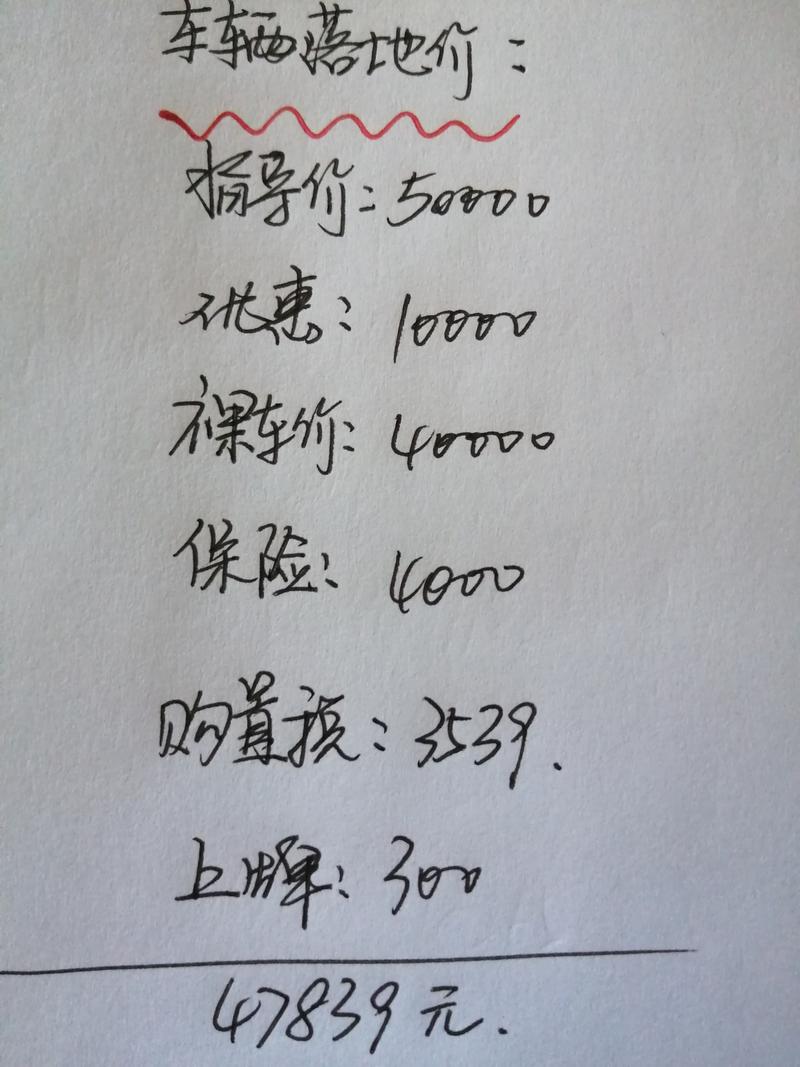 车辆落地价:
指导价:50000
优惠:10000
裸车价:40000
保险:4000
购置税:3539.
上牌:300
47839元.